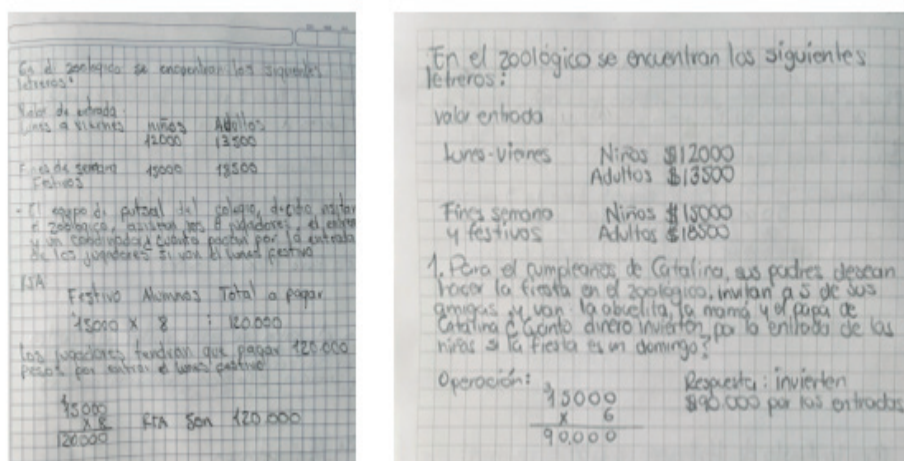 En el zoologico se encuentran los siguientes
letreros:
Valor de entrada:
lunes a viernes niños Adultos
12000 13500
Fines de semana 15000 18500
Festivos
- El equipo de futsal del colegio, decide visitar
el zoologico, asisten los 8 jugadores, el
y un coordinador cuanto pagan por la entrada
de los jugadores si van el lunes festivo
RTA
Festivo Alumnos Total a pagar
15000 x 8 : 120.000
los jugadores tendran que pagar 120.000
pesos por entrar el lunes festivo
15000
x 8
120000
RTA Son 120.000
En el zoológico se encuentran los siguientes
letreros:
valor entrada
lunes-viernes Niños $12000
Adultos $13500
Fines semana Niños $15000
y festivos Adultos $18500
1. Para el cumpleaños de Catalina, sus padres desean
hacer la fiesta en el zoológico, invitan a 5 de sus
amigas y van la abuelita, la mamá y el papa de
Catalina ¿Cuánto dinero invierten por la entrada de las
niñas si la fiesta es un domingo?
Operación: 15000
x 6
90.000
Respuesta: invierten
$90.000 por las entradas